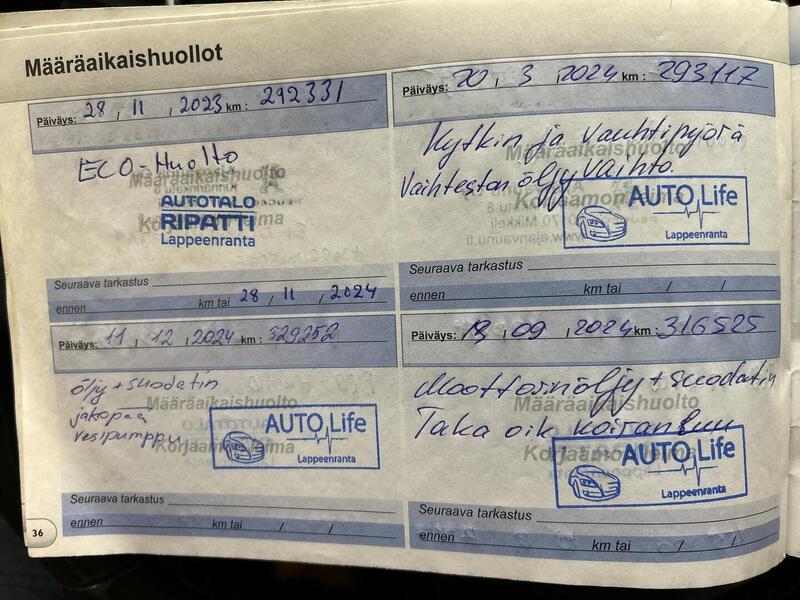 Määräaikaishuollot
Päiväys: 28 , 11 , 2023 km : 292331
ECO-Huolto
Määräaikaishuolto
AUTOTALO
RIPATTI
Lappeenranta
Seuraava tarkastus
ennen km tai 28 , 11 , 2024
Päiväys: 20 , 3 , 2024 km : 293117
Kytkin ja vauhtipyörä
Määräaikaishuolto
Vaihteston öljy vaihto.
AUTO Life
Lappeenranta
Seuraava tarkastus
ennen km tai / /
Päiväys: 11 , 12 , 2024 km : 329252
öljy + suodatin
Määräaikaishuolto
jakopää
vesipumppu
AUTO Life
Lappeenranta
Seuraava tarkastus
ennen km tai / /
Päiväys: 13 , 09 , 2024 km : 316525
Moottorinöljy + suodatin
Määräaikaishuolto
Taka oik koiranluu
AUTO Life
Lappeenranta
Seuraava tarkastus
ennen km tai / /
36